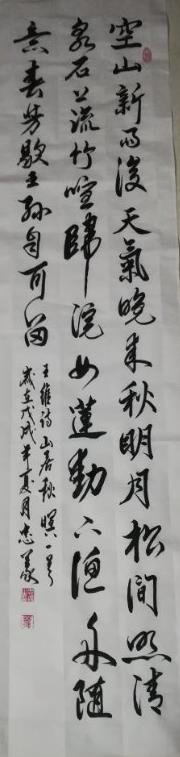 空山新雨後天氣晚来秋明月松間照清
泉石上流竹喧歸浣女蓮動下漁舟隨
意春芳歇王孫自可留
王維詩山居秋暝一首
歲在戊戌年夏月忠義